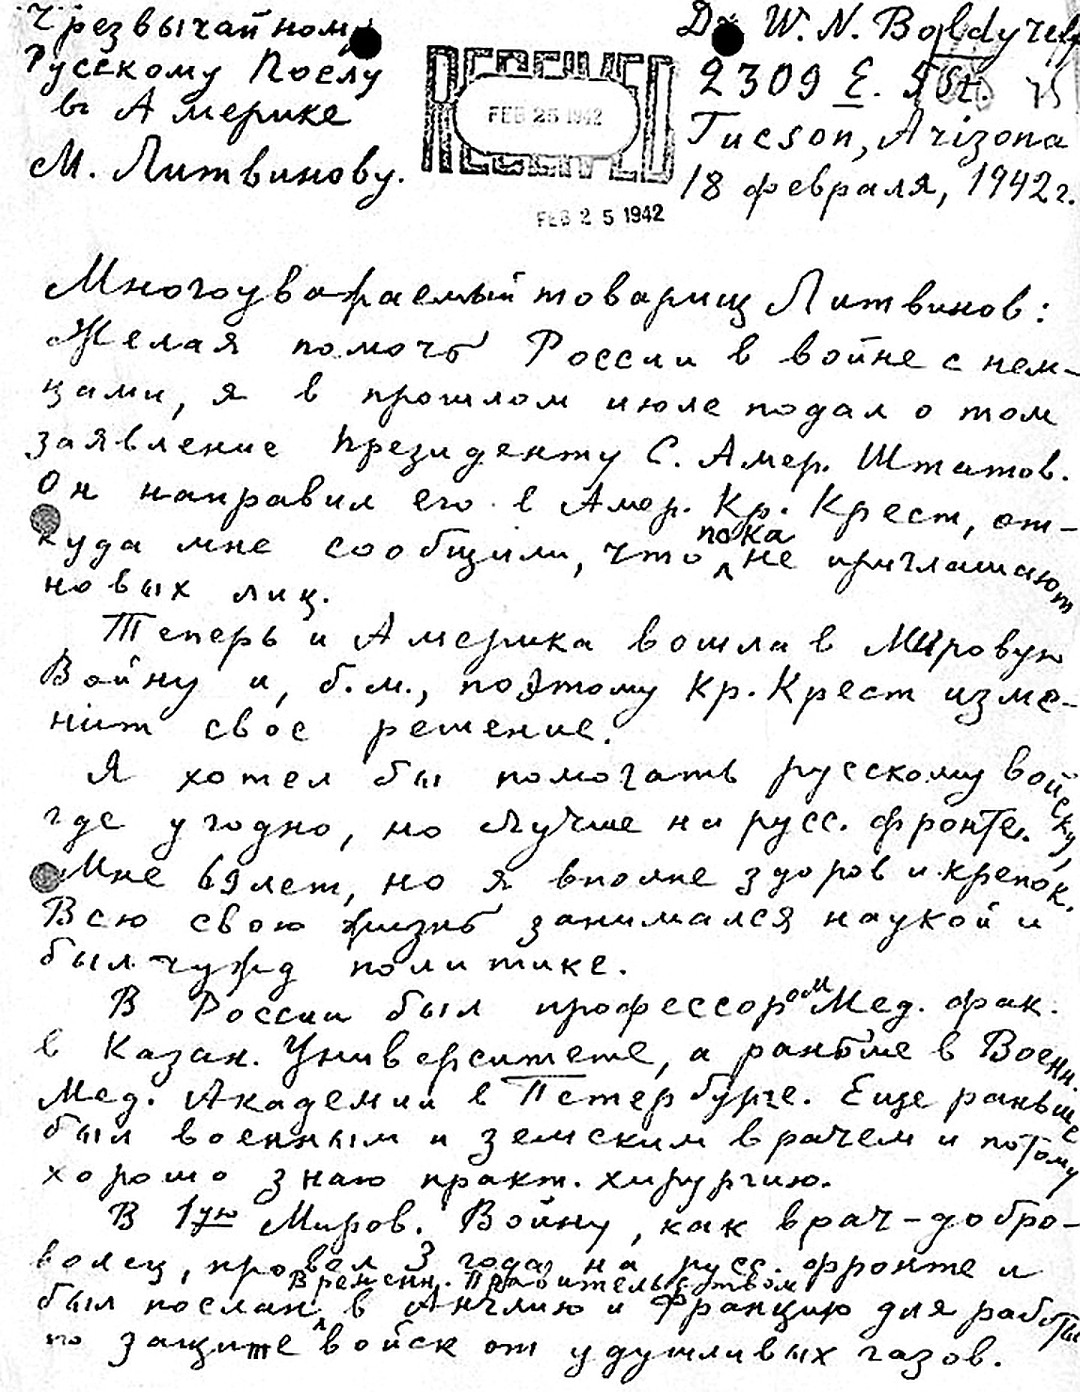 Чрезвычайному
Русскому Послу
в Америке
М. Литвинову.
Dr W. N. Boldyreff
2309 E. St.
Tucson, Arizona
18 февраля, 1942 г.
RECEIVED
FEB 25 1942
RECEIVED
FEB 25 1942
Многоуважаемый товарищ Литвинов:
Желая помочь России в войне с нем-
цами, я в прошлом июле подал о том
заявление Президенту С. Амер. Штатов.
Он направил его в Амер. Кр. Крест, от-
куда мне сообщили, что пока не приглашают
новых лиц.
Теперь и Америка вошла в Мировую
Войну и, б. м., поэтому Кр. Крест изме-
нит свое решение.
Я хотел бы помогать русскому войску,
где угодно, но лучше на русс. фронте.
Мне 69 лет, но я вполне здоров и крепок.
Всю свою жизнь занимался наукой и
был чужд политике.
В России был профессором Мед. фак.
в Казан. Университете, а раньше в Военн.
Мед. Академии в Петербурге. Еще раньше
был военным и земским врачем и потому
хорошо знаю практ. хирургию.
В 1ую Миров. Войну, как врач-добро-
волец, провел 3 года на русс. фронте и
был послан Временн. Правительством в Англию и Францию для работы
по защите войск от удушливых газов.